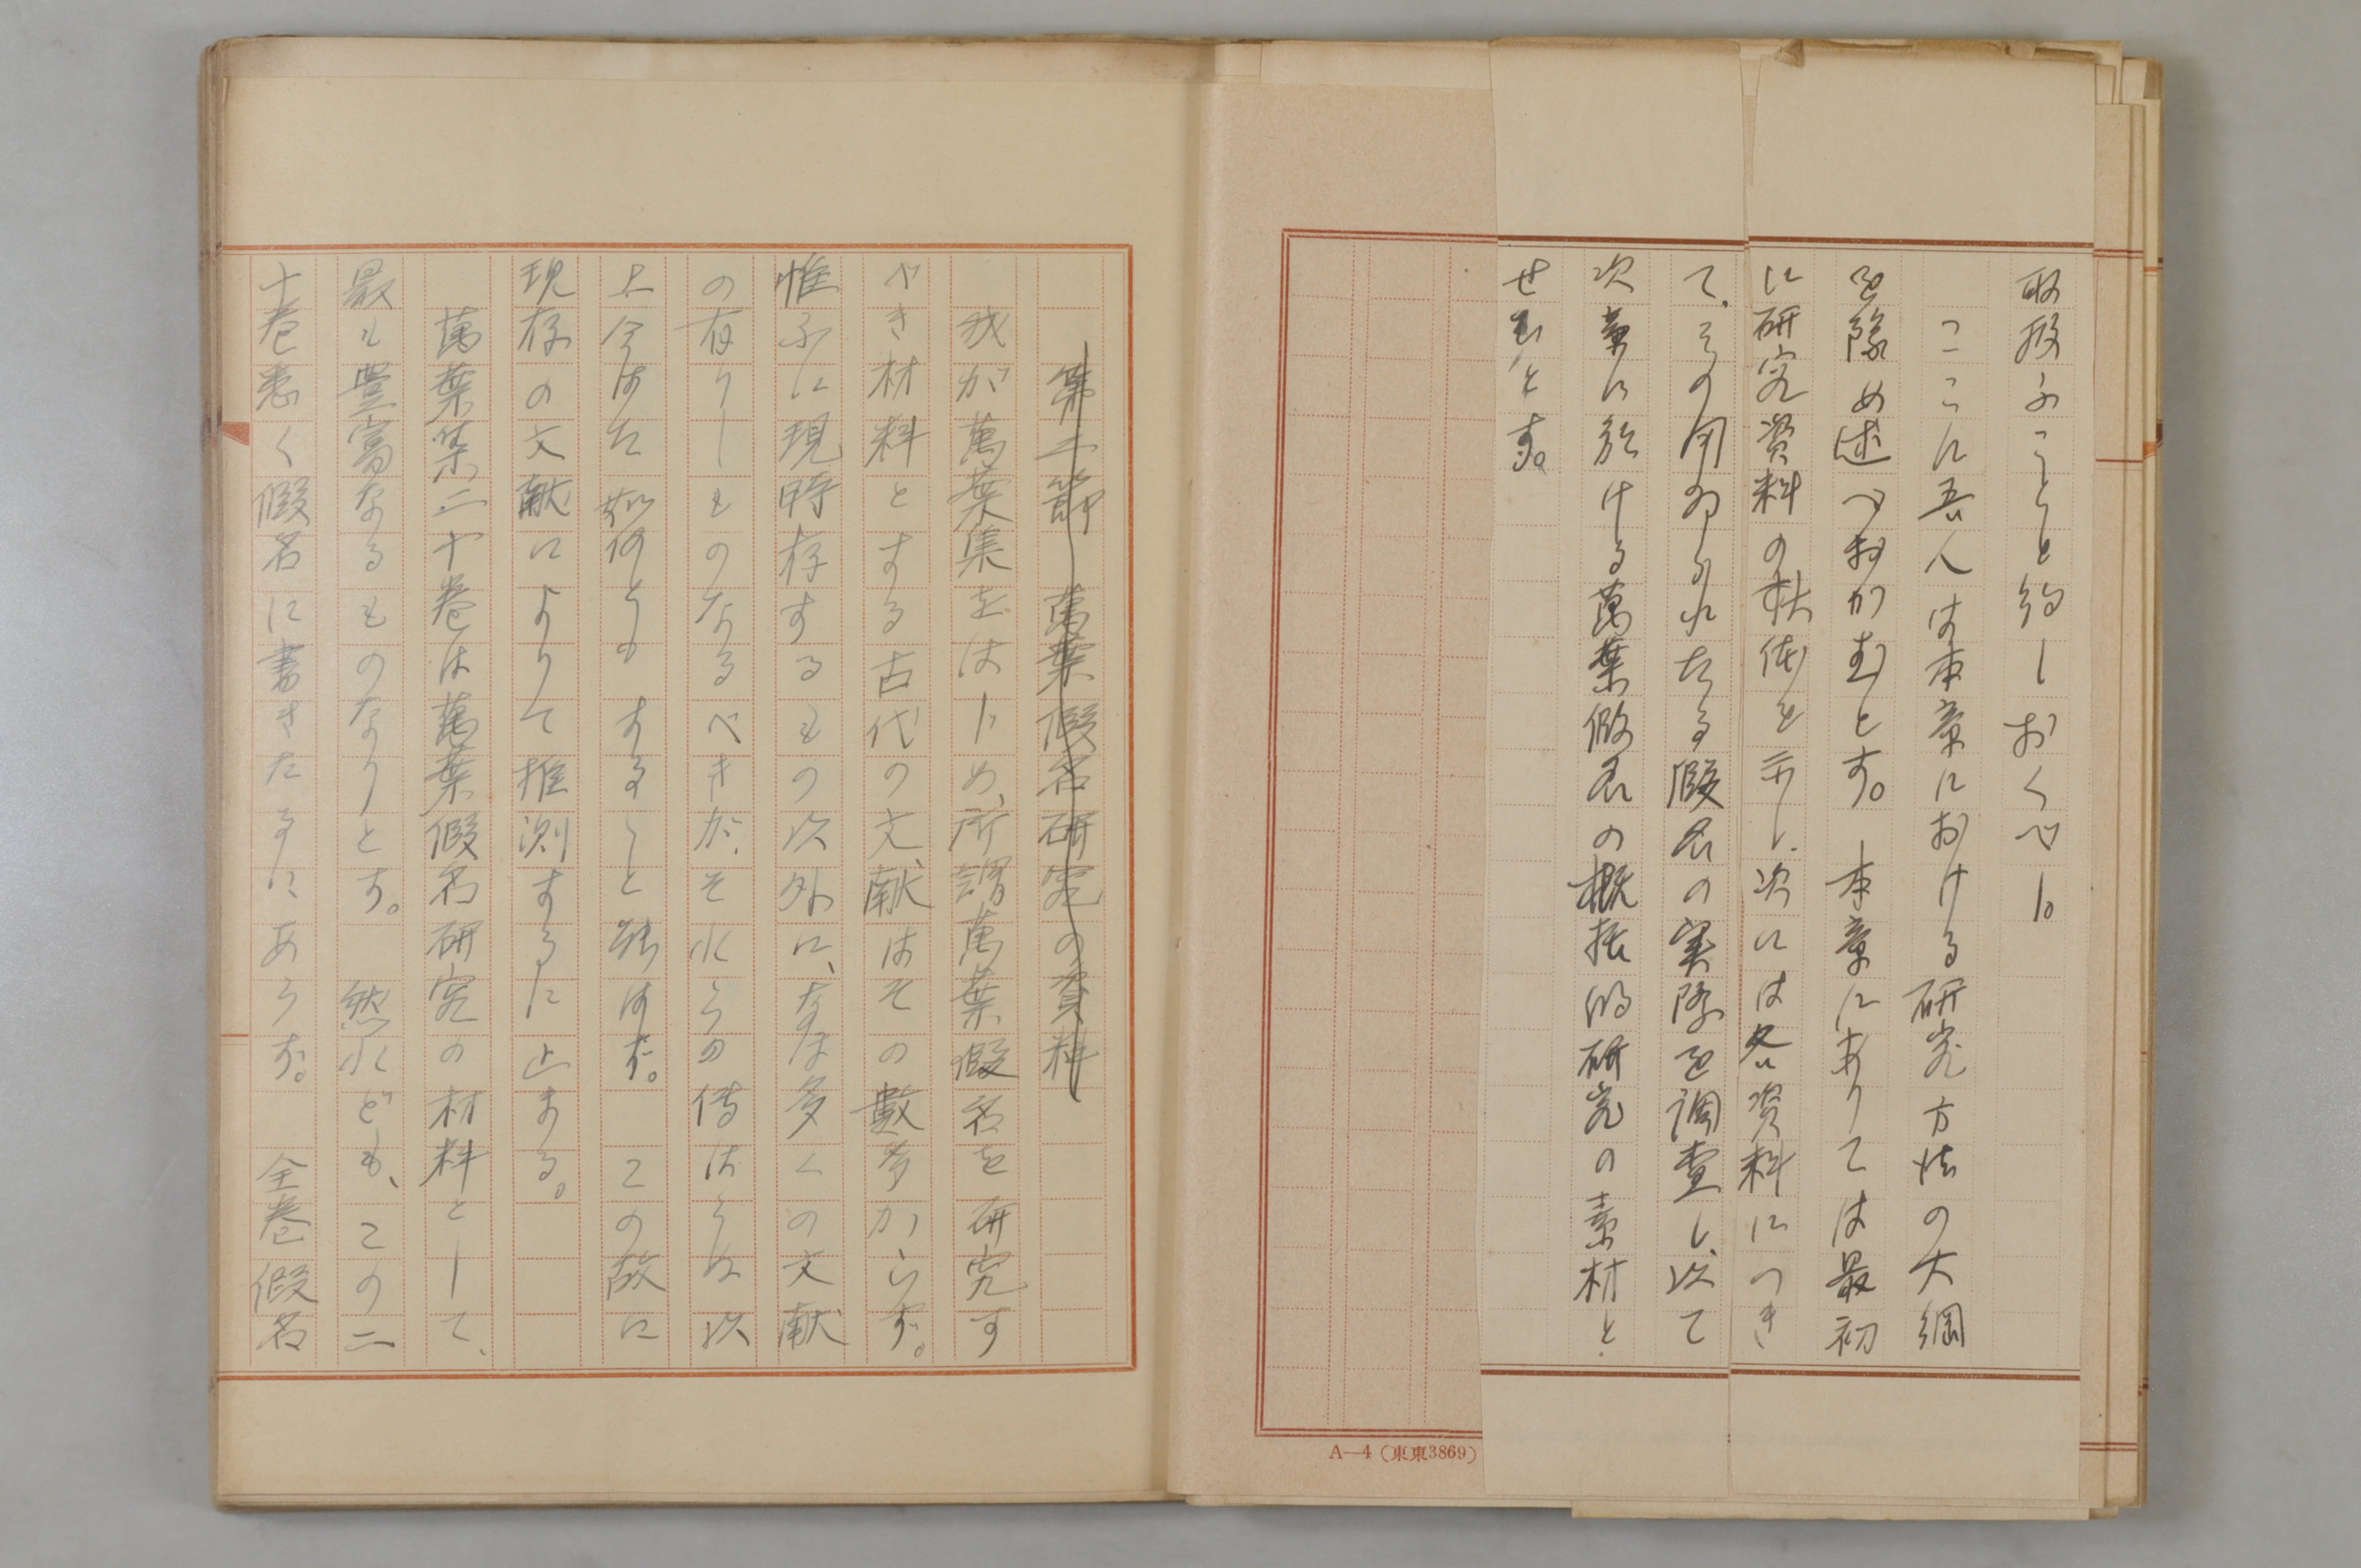 取扱ふことと約しおくべし。
ここに吾人は本章における研究方法の大綱
を豫め述べおかむとす。本章にありては最初
に研究資料の大体を示し、次には各資料につき
て、その用ゐられたる假名の実際を調査し、以て
次章に於ける萬葉假名の概括的研究の素材と
せむとす。
A―4(東東3869)
第二節 萬葉假名研究の資料
我が萬葉集をはじめ、所謂萬葉假名を研究す
べき材料とする古代の文献はその數多からず。
惟ふに現時存するもの以外に、なほ多くの文献
の有りしものなるべきが、それらの傳はらぬ以
上今はた如何ともすること能はず。この故に
現存の文献によりて推測するに止まる。
萬葉集二十巻は萬葉假名研究の材料として、
最も豐富なるものなりとす。然れども、この二
十巻悉く假名に書きたるにあらず。全巻假名